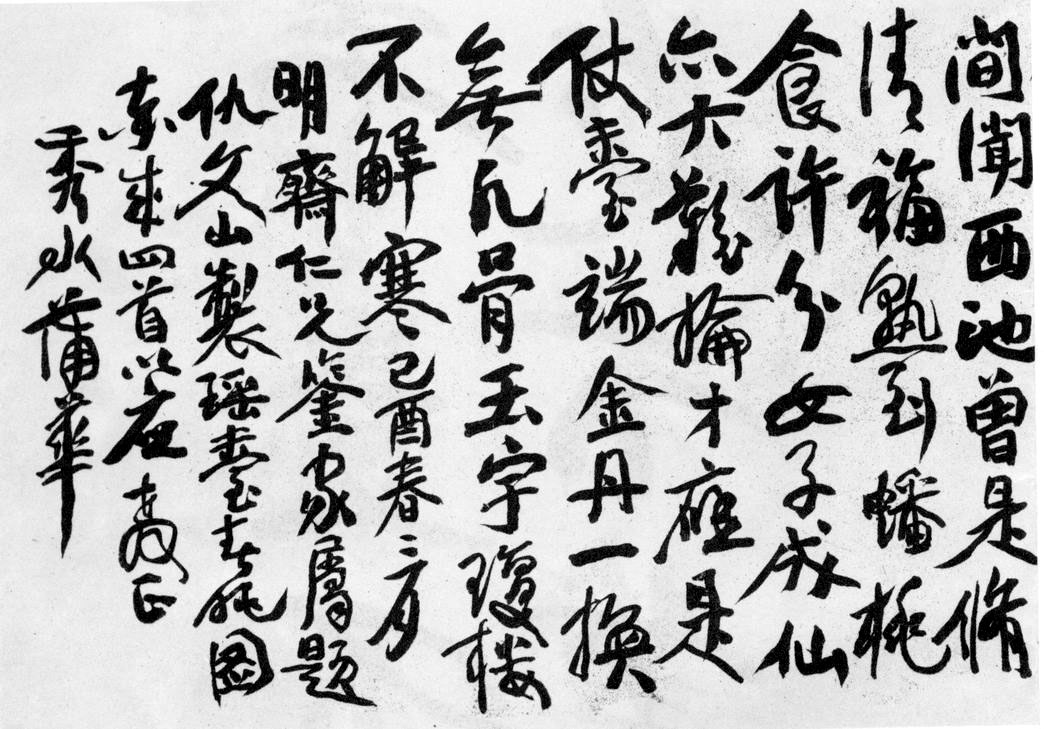 間聞西池曾是脩
清福熟到蟠桃
食許分女子成仙
亦大難掄才應是
仗臺端金丹一換
無凡骨玉宇瓊楼
不解寒己酉春三月
明齋仁兄鑒家屬題
仇文山製瑶臺春眺圖
索成四首以應
秀水蒲華